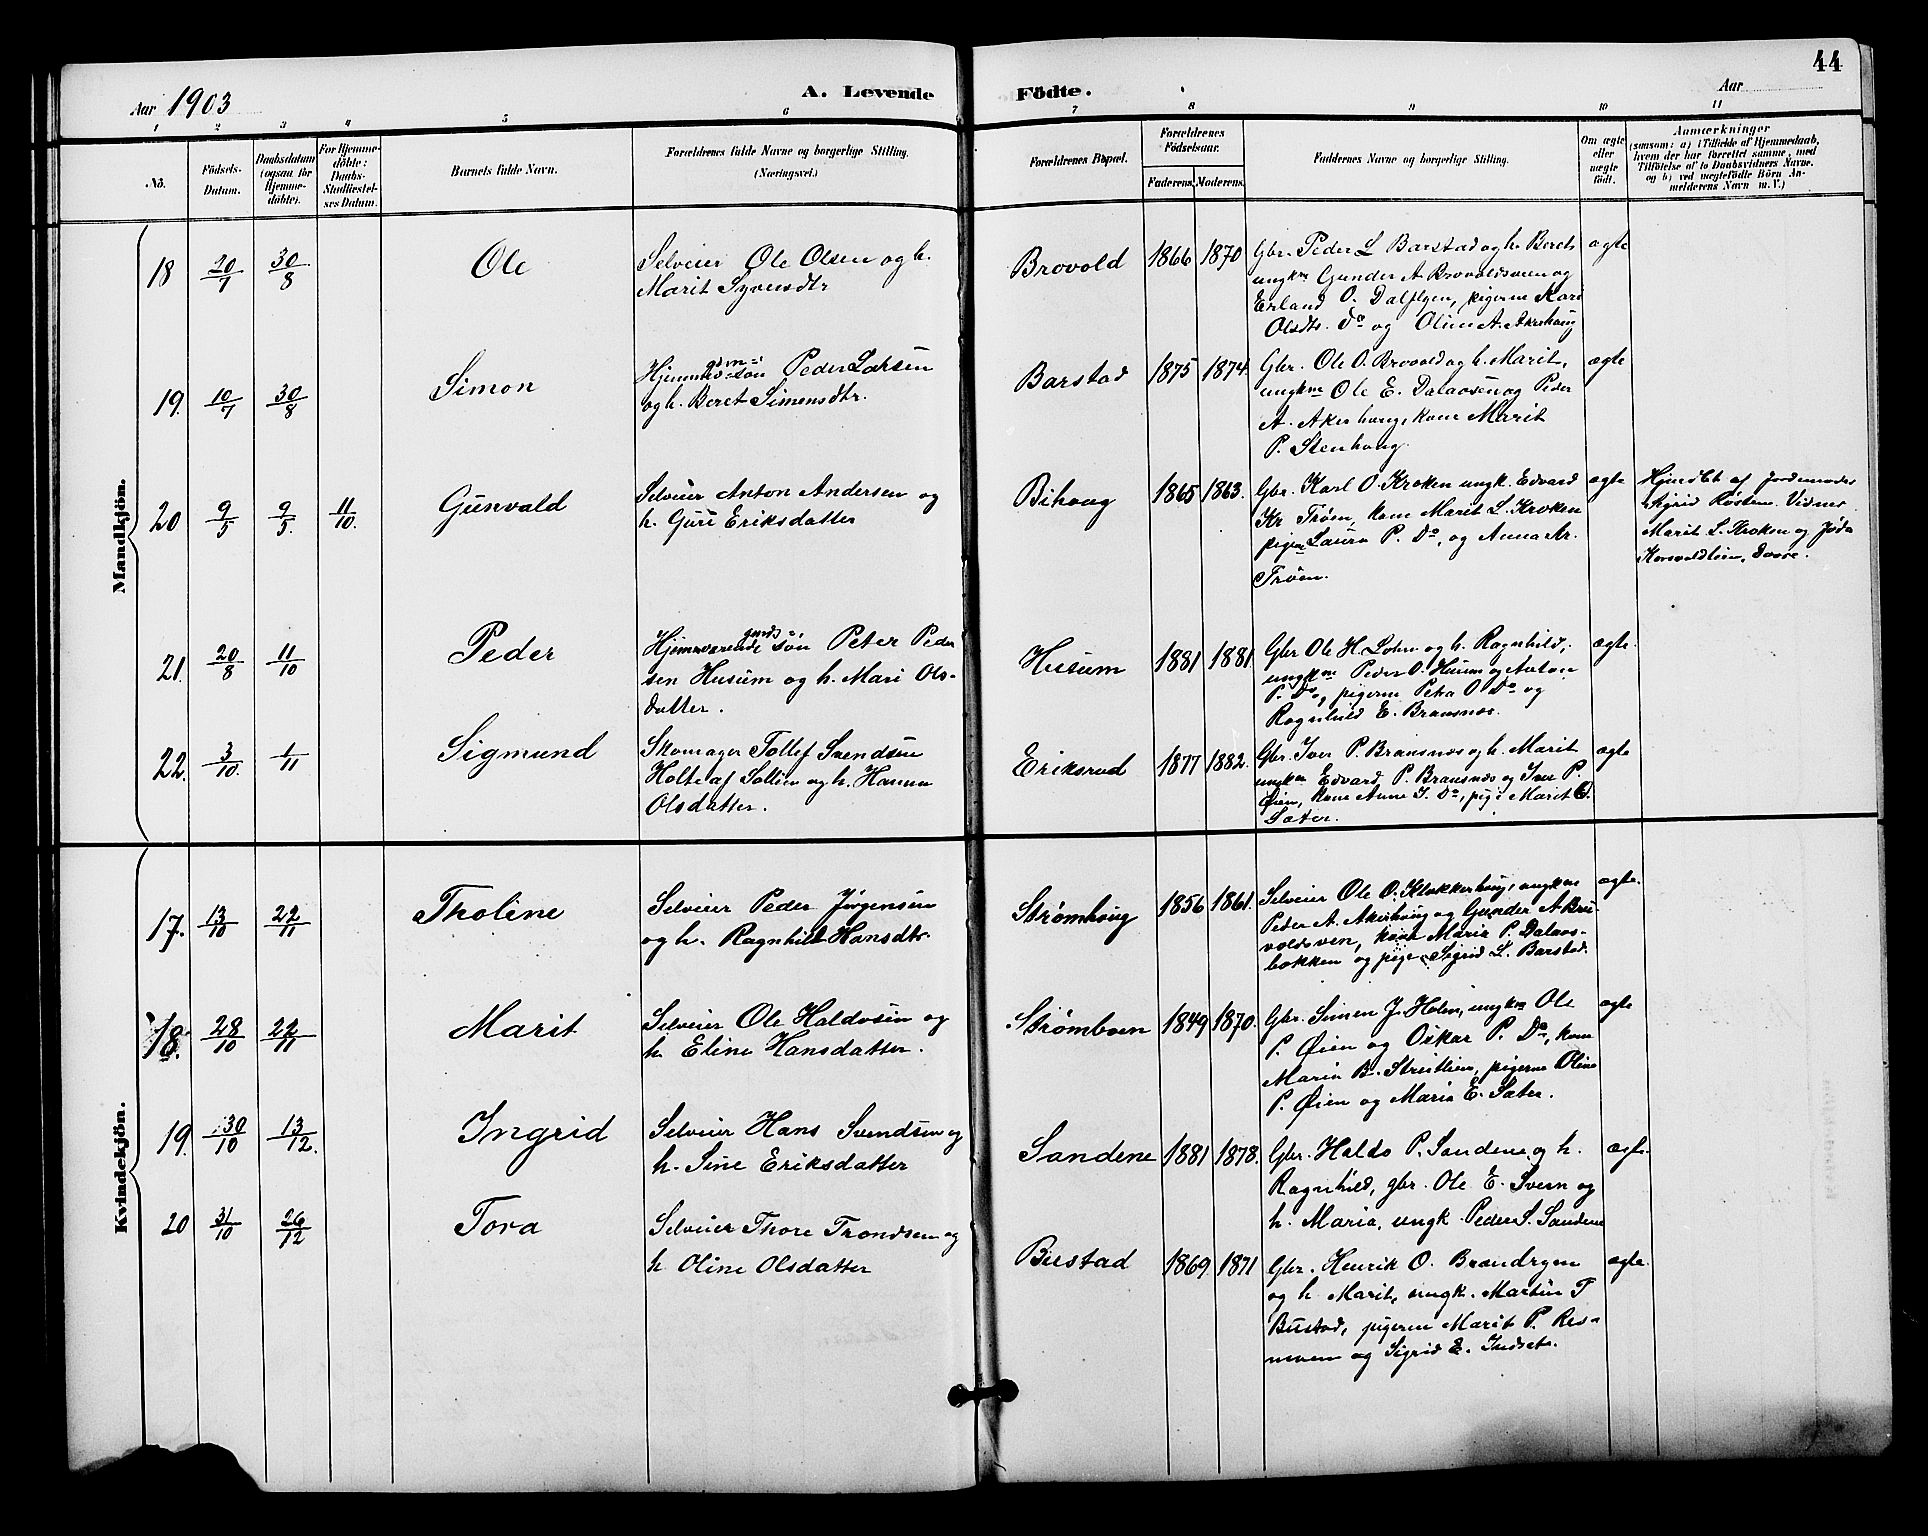 44
Aar 1903
A. Levende
Födte.
Aar
1 2 3 4 5 6 7 8 9 10 11
No.
Födsels-
Datum.
Daabsdatum
(ogsaa for
Hjemme-
döbte).
For Hjemme-
döbte:
Daabs-
Stadfæstel-
ses Datum.
Barnets fulde Navn.
Forældrenes fulde Navne og borgerlige Stilling.
(Næringsvei.)
Forældrenes Bopæl.
Forældrenes
Födselsaar.
Faderens.
Moderens.
Faddernes Navne og borgerlige Stilling.
Om ægte
eller
uægte
födt.
Anmærkninger
(saasom: a) i Tilfælde af Hjemmedaab,
hvem der har forrettet samme, med
Tilföielse af to Daabsvidners Navne.
og b) ved uægtefödte Börn An-
melderens Navn m. V.)
Mandkjön.
18 20/7 30/8 Ole
Selveier Ole Olsen og h.
Marit Syversdtr
Brovold 1866 1870
Gbr. Peder L Barstad og h. Beret
ungkm Gunder A Brovoldsveen og
Erland O. Dalflyen, pigerne Kari
Olsdtr. Do og Oline A. Akerhaug
ægte
19. 10/7 30/8 Simon
Hjemmeværende gbm. søn Peder Larsen
og h. Beret Simensdtr.
Barstad 1875 1874
Gbr. Ole O. Brovold og h. Marit,
ungkm Ole E. Dalaosen og Peder
A. Akerhaug, kone Marit
P. Stenhaug.
ægte
20 9/5 9/5. 11/10. Gunvald
Selveier Anton Andersen og
h. Guri Eriksdatter
Bihaug 1865 1863.
Gbr. Karl O. Kroken ungk. Edvard
Kr Trøen, kone Marit L. Kroken
pigen Laura P. Do, og Anna Ar.
Trøen.
ægte
Hjemdbt af Jordemoder
Sigrid Røsten. Vidner
Marit L. Kroken og
21. 20/8 11/10 Peder
Hjemmeværende gaards søn Peter Peder
sen Husum og h. Mari Ols-
datter.
Husum 1881 1881.
Gbr Ole H. Lohn og h. Ragnhild,
ungkm Peder O. Husum og Anton
P. Do, pigerne Petra O Do og
Ragnhild E. Bransnæs.
ægte.
22. 3/10. 1/11 Sigmund
Skomager Tollef Svendsen
Holte af Sollien og h. Hanna
Olsdatter.
Eriksrud 1877 1882.
Gbr. Iver P. Bransnæs og h. Marit
ungkm Edvard P. Bransnæs og Iver P.
Øien, kone Anne J. Do, pige Marit O.
Sæter.
ægte
Kvindekjön.
17. 13/10 22/11 Tholine
Selveier Peder Jørgensen
og h. Ragnhild Hansdtr.
Strømhaug 1856 1861.
Selveier Ole O. Klokkerhaug, ungkm
Peder A. Akerhaug og Gunder A Bro-
voldsven, kone Marie P. Dalaas-
bakken og pige Sigrid L. Barstad.
ægte.
18. 28/10 22/11 Marit
Selveier Ole Haldosen og
h. Eline Hansdatter.
Strømboen 1849 1870.
Gbr. Simen J. Holen, ungkm Ole
P. Øien og Oskar P. Do, kone
Maria B. Streitlien, pigerne Oline
P. Øien og Maria E. Sæter.
ægte
19. 30/10 13/12. Ingrid
Selveier Hans Svendsen og
h. Sine Eriksdatter
Sandene 1881 1878.
Gbr. Haldo P. Sandene og h.
Ragnhild, gbr. Ole E. Sveen og
h. Maria, ungk. Peder S. Sandene
ægte.
20 31/10 26/12 Tora
Selveier Thore Trondsen og
h. Oline Olsdatter
Bustad 1869. 1871
Gbr. Henrik O. Brandryen
og h. Marit, ungk. Martin T
Bustad, pigerne Marit P.
og Sigrid E. Indset.
ægte.